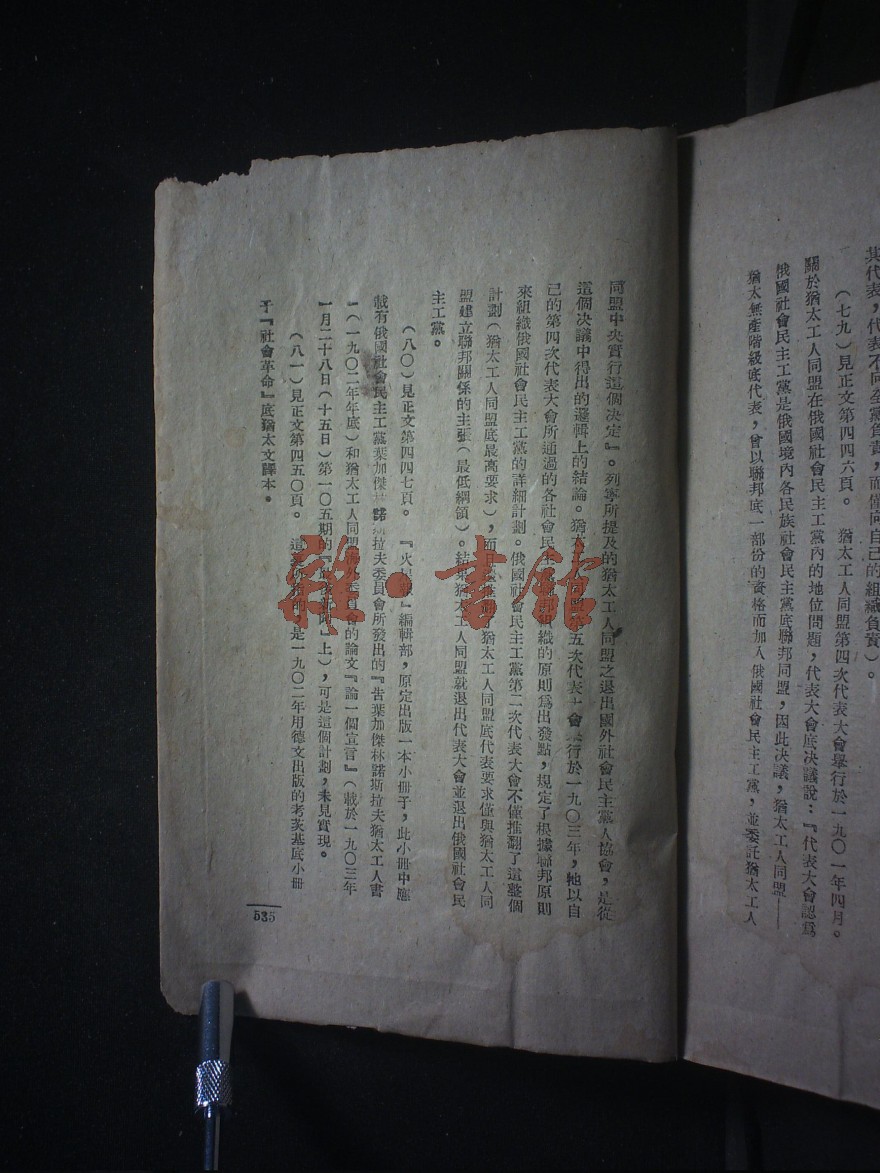 其代表，代表不向全黨負責，而僅向自己的組織負責）。
（七九）見正文第四四六頁。　猶太工人同盟第四次代表大會舉行於一九〇一年四月。
關於猶太工人同盟在俄國社會民主工黨內的地位問題，代表大會底決議說：『代表大會認爲
俄國社會民主工黨是俄國境內各民族社會民主黨底聯邦同盟，因此決議，猶太工人同盟——
猶太無產階級底代表，曾以聯邦底一部份的資格而加入俄國社會民主工黨，並委託猶太工人
同盟中央實行這個決定』。列寧所提及的猶太工人同盟之退出國外社會民主黨人協會，是從
這個決議中得出的邏輯上的結論。猶太工人同盟第五次代表大會舉行於一九〇三年，牠以自
己的第四次代表大會所通過的各社會民主黨聯邦組織的原則爲出發點，規定了根據聯邦原則
來組織俄國社會民主工黨的詳細計劃。俄國社會民主工黨第二次代表大會不僅推翻了這整個
計劃（猶太工人同盟底最高要求），而且猶太工人同盟底代表要求僅與猶太工人同
盟建立聯邦關係的主張（最低綱領）。結果猶太工人同盟就退出代表大會並退出俄國社會民
主工黨。
（八〇）見正文第四四七頁。　『火星報』編輯部，原定出版一本小冊子，此小冊中應
載有俄國社會民主工黨葉加傑林諾斯拉夫委員會所發出的『告葉加傑林諾斯拉夫猶太工人書
』（一九〇二年年底）和猶太工人同盟委員會的論文『論一個宣言』（載於一九〇三年
一月二十八日（十五日）第一〇五期的『』上），可是這個計劃，未見實現。
（八一）見正文第四五〇頁。　這是一九〇二年用德文出版的考茨基底小冊
子『社會革命』底猶太文譯本。
535
雜·書館